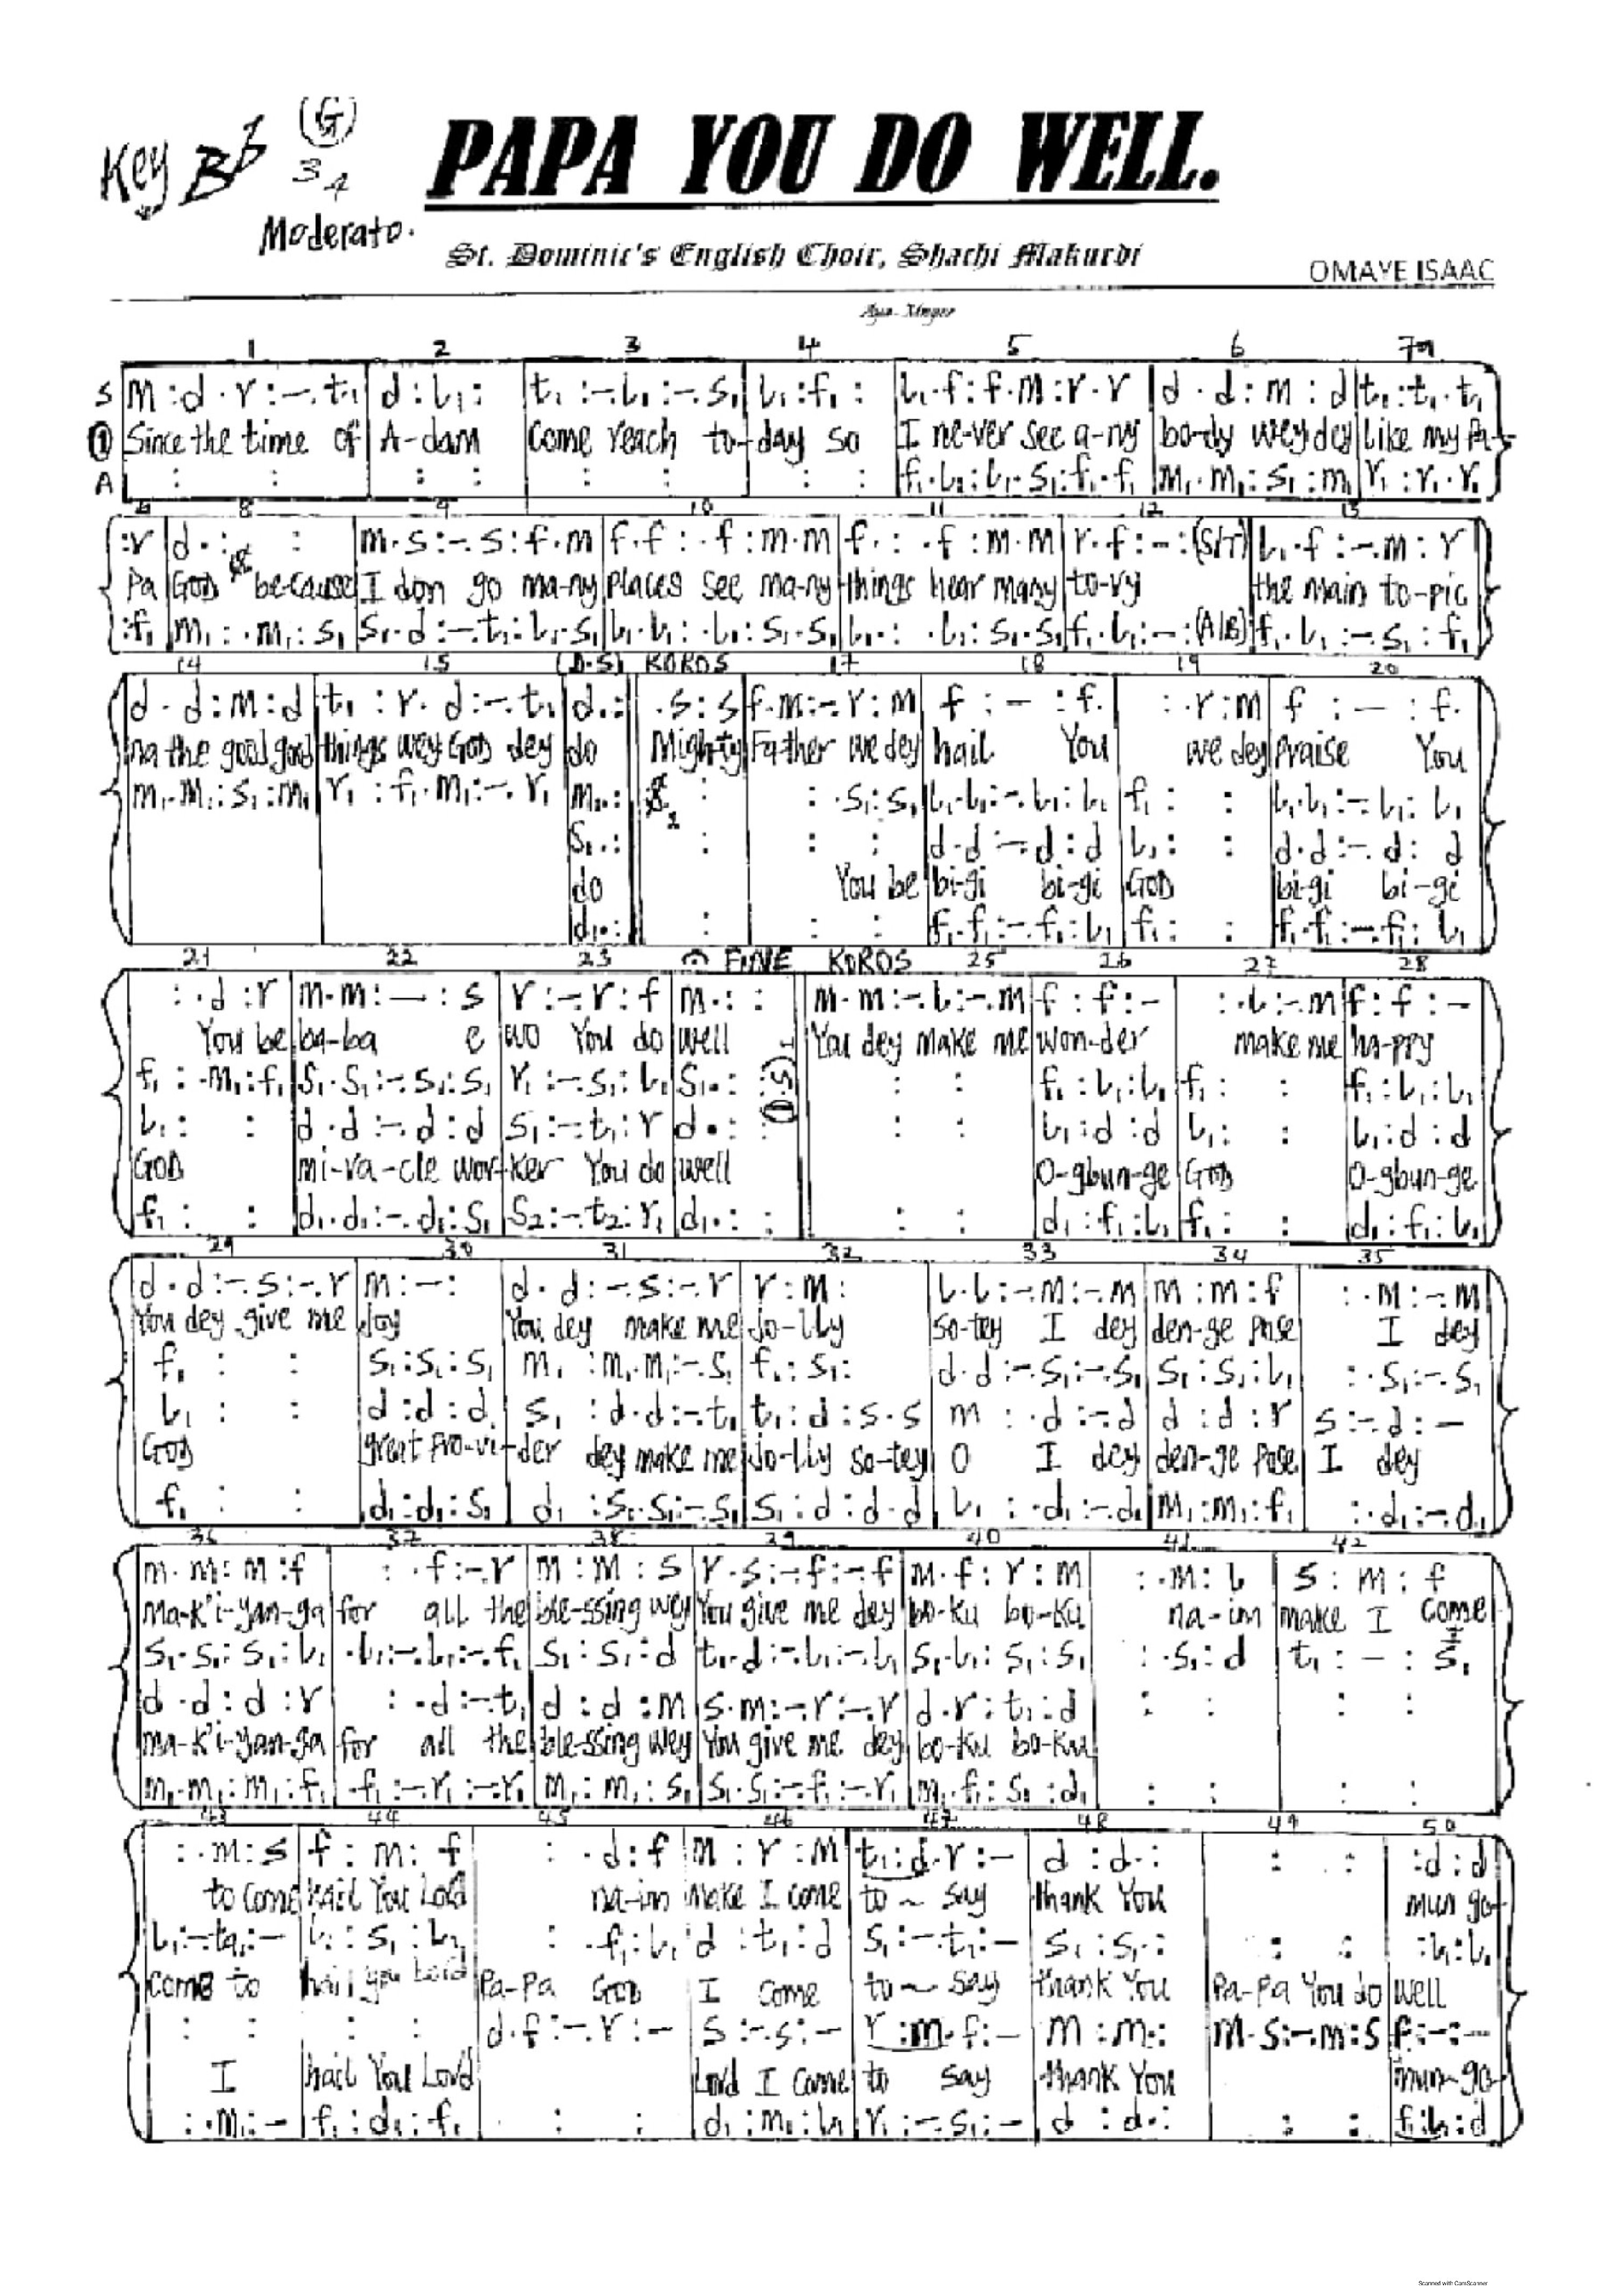 Key Bb (G)
3 4
Moderato.
PAPA YOU DO WELL.
St. Dominic's English Choir, Shachi Makurdi
OMAYE ISAAC
1 2 3 4 5 6 7
S m :d . r :-. t₁ | d : l₁ : | t₁ :-. l₁ :-. s₁ | l₁ : f₁ : | l₁ . f : f . m : r . r | d . d : m : d | t₁ : t₁ . t₁
① Since the time of A-dam Come reach to-day so I ne-ver see a-ny bo-dy wey dey like my Pa-
A : : | : : | : : | : : | f₁ . l₁ : l₁ . s₁ : f₁ . f₁ | m₁ . m₁ : s₁ : m₁ | r₁ : r₁ . r₁
8 9 10 11 12 13
: r | d . : : | m . s :-. s : f . m | f . f : . f : m . m | f . : . f : m . m | r . f : - : (S/T) | l₁ . f :-. m : r
Pa God be-cause I don go ma-ny places see ma-ny things hear many to-ry the main to-pic
: f₁ | m₁ : . m₁ : s₁ | s₁ . d :-. t₁ : l₁ . s₁ | l₁ . l₁ : . l₁ : s₁ . s₁ | l₁ . : . l₁ : s₁ . s₁ | f₁ . l₁ : - : (A/B) | f₁ . l₁ :-. s₁ : f₁
14 15 (D.S) KOROS 17 18 19 20
d . d : m : d | t₁ : r . d :-. t₁ | d . : | . s : s | f . m :-. r : m | f : - : f . | : . r : m | f : - : f .
na the good good things wey God dey do Mighty Fa-ther we dey hail You we dey praise You
m₁ . m₁ : s₁ : m₁ | r₁ : f₁ . m₁ :-. r₁ | m₁ . : | : | : . s₁ : s₁ | l₁ . l₁ :-. l₁ : l₁ | f₁ : : | l₁ . l₁ :-. l₁ : l₁
s₁ . : | : | : : | d . d :-. d : d | l₁ : : | d . d :-. d : d
do You be bi-gi bi-gi God bi-gi bi-gi
d₁ . : | : | : : | f₁ . f₁ :-. f₁ : l₁ | f₁ : : | f₁ . f₁ :-. f₁ : l₁
21 22 23 FINE KOROS 25 26 27 28
: . d : r | m . m : - : s | r :-. r : f | m . : : | m . m :-. l :-. m | f : f : - | : . l :-. m | f : f : -
You be ba-ba e wo You do well You dey make me won-der make me ha-ppy
f₁ : . m₁ : f₁ | s₁ . s₁ :-. s₁ : s₁ | r₁ :-. s₁ : l₁ | s₁ . : : (D.S) | : : | f₁ : l₁ : l₁ | f₁ : : | f₁ : l₁ : l₁
l₁ : : | d . d :-. d : d | s₁ :-. t₁ : r | d . : : | : : | l₁ : d : d | l₁ : : | l₁ : d : d
God mi-ra-cle wor-ker You do well O-gbun-ge God O-gbun-ge
f₁ : : | d₁ . d₁ :-. d₁ : s₁ | s₂ :-. t₂ : r₁ | d₁ . : : | : : | d₁ : f₁ : l₁ | f₁ : : | d₁ : f₁ : l₁
29 30 31 32 33 34 35
d . d :-. s :-. r | m : - : | d . d :-. s :-. r | r : m : | l . l :-. m :-. m | m : m : f | : . m :-. m
You dey give me Joy You dey make me Jo-lly So-tey I dey den-ge pose I dey
f₁ : : | s₁ : s₁ : s₁ | m₁ : m₁ . m₁ :-. s₁ | f₁ : s₁ : | d . d :-. s₁ :-. s₁ | s₁ : s₁ : l₁ | : . s₁ :-. s₁
l₁ : : | d : d : d | s₁ : d . d :-. t₁ | t₁ : d : s . s | m : . d :-. d | d : d : r | s :-. d : -
God great Pro-vi-der dey make me Jo-lly so-tey O I dey den-ge Pose I dey
f₁ : : | d₁ : d₁ : s₁ | d₁ : s₁ . s₁ :-. s₁ | s₁ : d : d . d | l₁ : . d₁ :-. d₁ | m₁ : m₁ : f₁ | : . d₁ :-. d₁
36 37 38 39 40 41 42
m . m : m : f | : . f :-. r | m : m : s | r . s :-. f :-. f | m . f : r : m | : . m : l | s : m : f
ma-k'i-yan-ga for all the ble-ssing wey You give me dey bo-ku bo-ku na-im make I come
s₁ . s₁ : s₁ : l₁ | . l₁ :-. l₁ :-. f₁ | s₁ : s₁ : d | t₁ . d :-. l₁ :-. l₁ | s₁ . l₁ : s₁ : s₁ | : . s₁ : d | t₁ : - : s₁
d . d : d : r | : . d :-. t₁ | d : d : m | s . m :-. r :-. r | d . r : t₁ : d | : : | : :
ma-k'i-yan-ga for all the ble-ssing wey You give me dey bo-ku bo-ku
m₁ . m₁ : m₁ : f₁ | . f₁ :-. r₁ :-. r₁ | m₁ : m₁ : s₁ | s₁ . s₁ :-. f₁ :-. r₁ | m₁ . f₁ : s₁ : d₁ | : : | : :
43 44 45 46 47 48 49 50
: . m : s | f : m : f | : . d : f | m : r : m | t₁ : d . r : - | d : d . : | : : | : d : d
to come hail You Lord na-im make I come to ~ say thank You mun go-
l₁ :-. ta₁ : - | l₁ : s₁ : l₁ | : . f₁ : l₁ | d : t₁ : d | s₁ :-. t₁ : - | s₁ : s₁ . : | : : | : l₁ : l₁
come to hail you Lord Pa-Pa God I come to ~ say thank You Pa-Pa You do well
: : | : : | d . f :-. r : - | s :-. s : - | r : m . f : - | m : m . : | m . s :-. m : s | f : - : -
I hail You Lord Lord I come to say thank You mun-go-
: . m₁ : - | f₁ : d₁ : f₁ | : : | d₁ : m₁ : l₁ | r₁ :-. s₁ : - | d : d . : | : : | f₁ : l₁ : d
Scanned with CamScanner